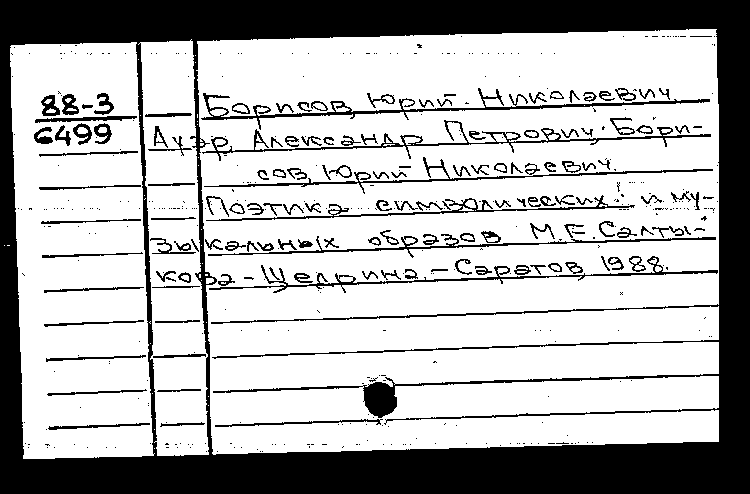 88-3
6499
Борисов, Юрий Николаевич
Ауэр, Александр Петрович; Бори-
сов, Юрий Николаевич.
Поэтика символических и му-
зыкальных образов М.Е.Салты-
кова-Щедрина.-Саратов, 1988.